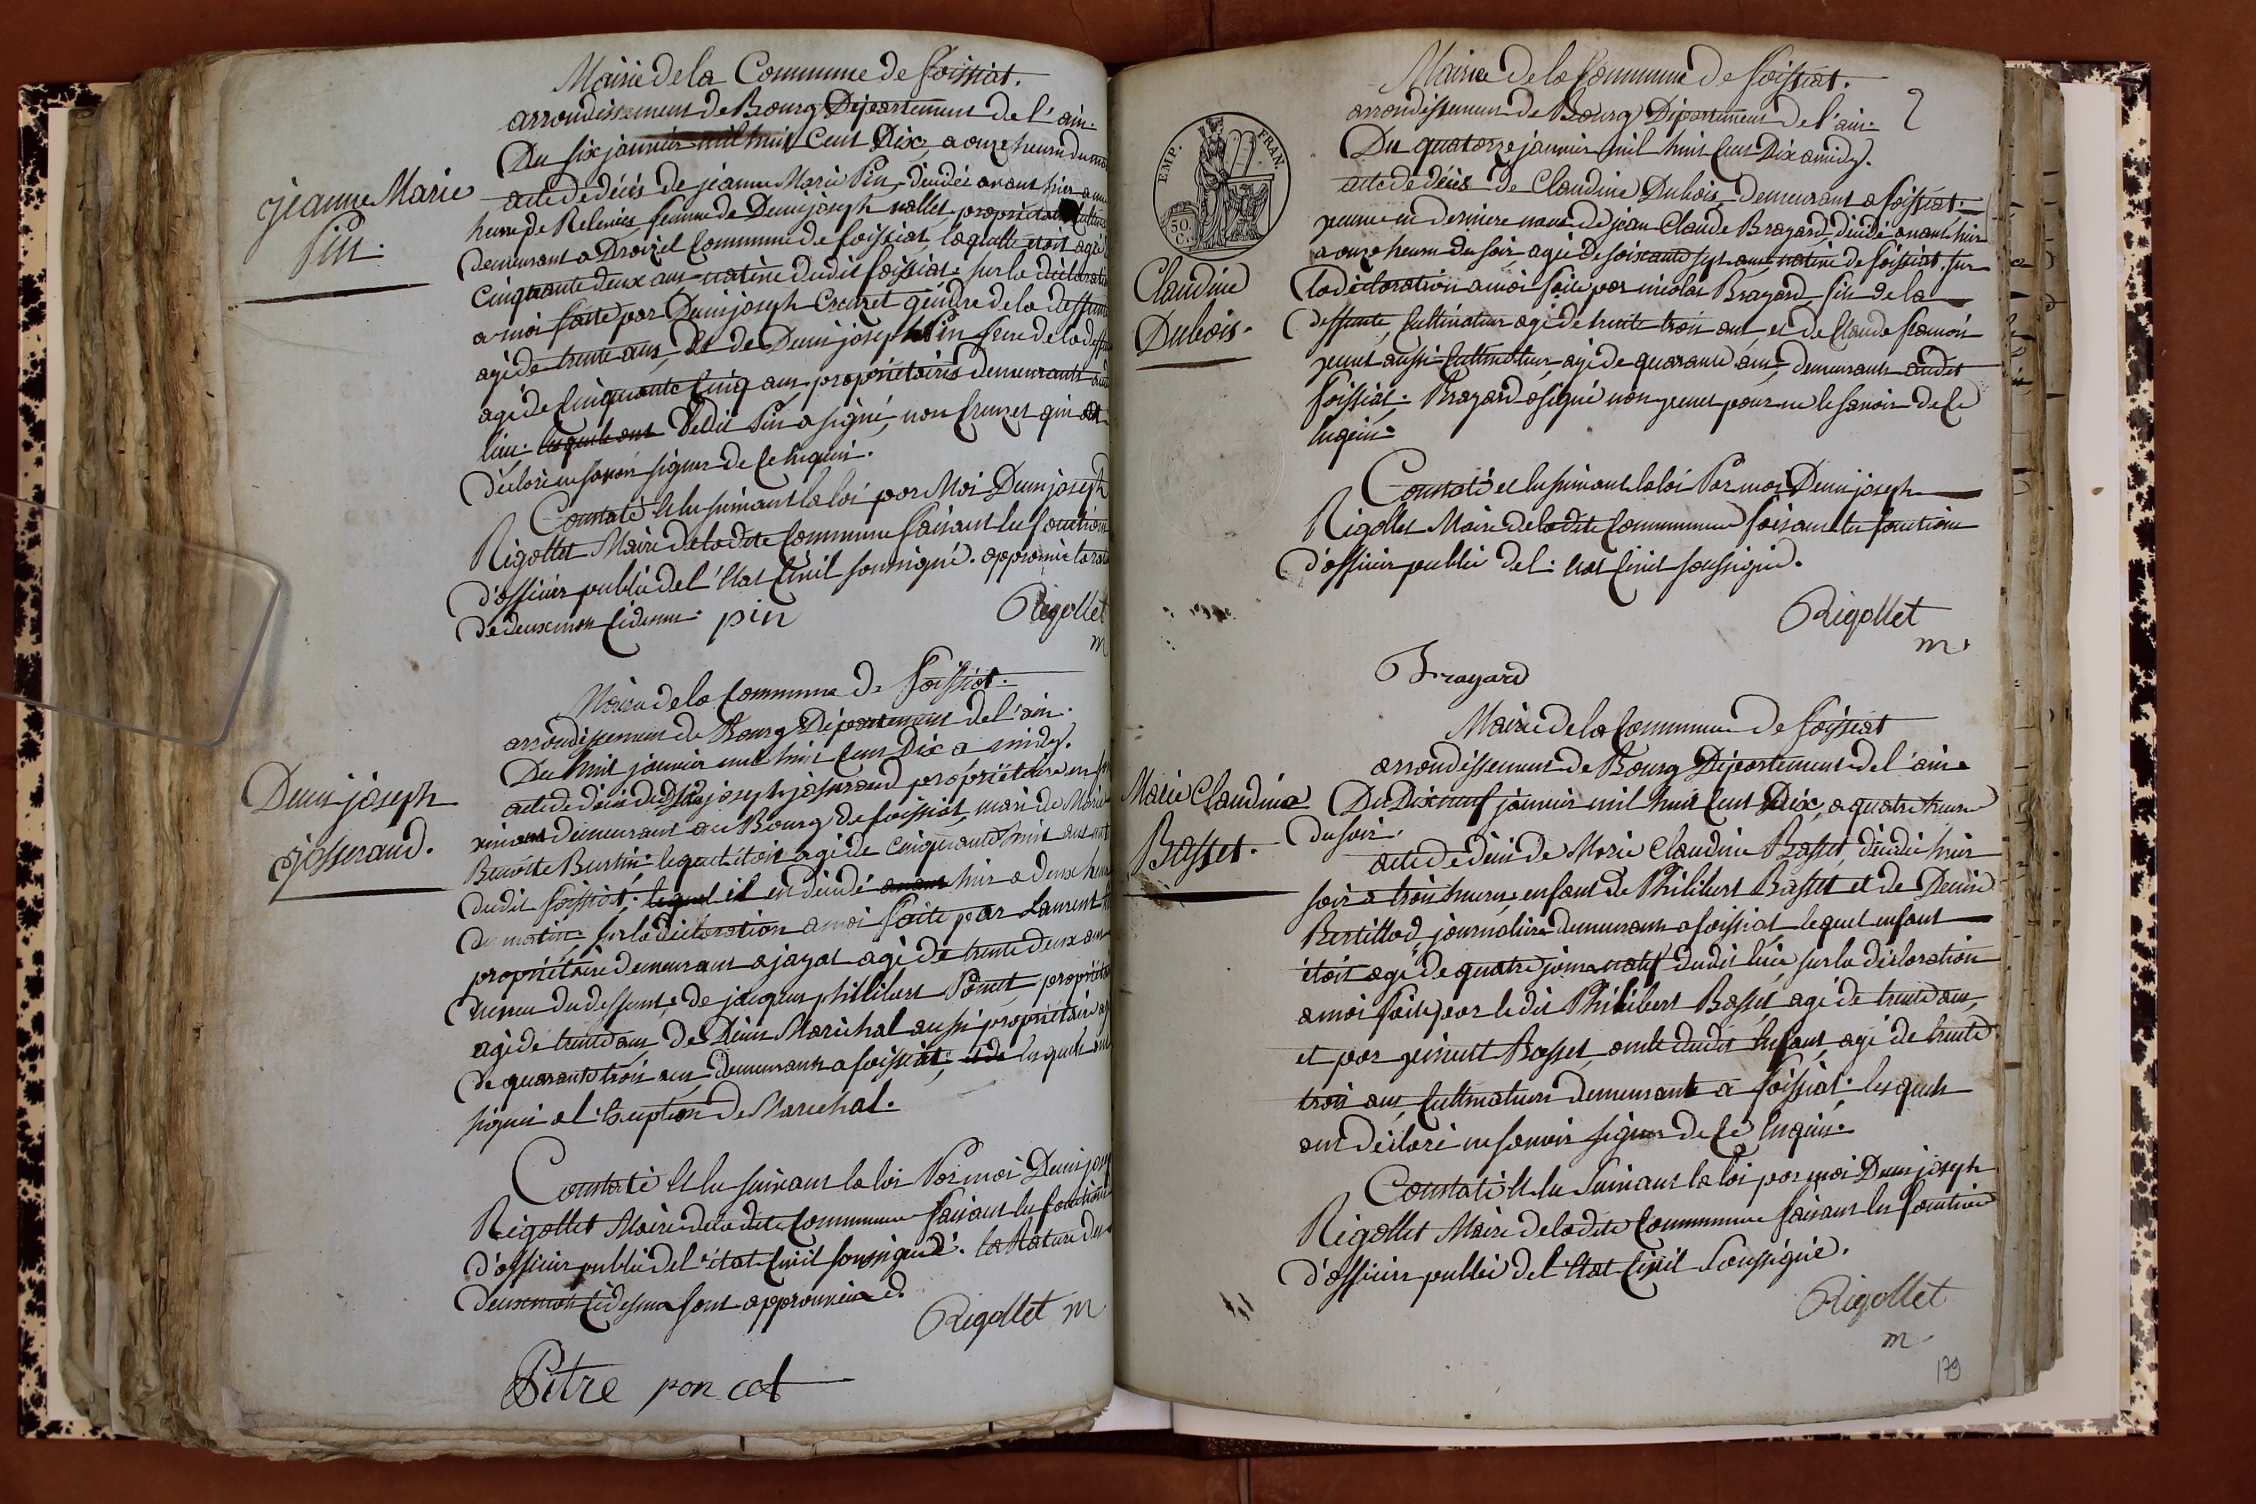 Mairie de la Commune de foissiat.
arrondissement de Bourg Département de l'ain.
Du six janvier mil huit Cent Dix, a onze heures du
jeanne Marie
Pin.
acte de décès de jeanne Marie Pin, décédée avant hier a
heure de Relevée, femme de Denis joseph nallet propriétaire
demeurant a Commune de foissiat, laquelle etoit agée
Cinquante deux ans native dudit foissiat. sur la déclaration
a moi faite par Denis joseph Creuzet gendre de la deffunte
agé de trente ans, et de Denis joseph Pin frere de la deff
agé de Cinquante Cinq ans, propriétaires demeurants aud
lieu. lesquels ont ledit Pin a signé, non Creuzet qui a
déclaré ne savoir signer de Ce requis.
Constaté Et lu suivant la loi par Moi Denis joseph
Rigollet Maire de la dite Commune faisant les fonctions
d'officier public de l'état Civil soussigné. approuvé la
de deux mots Cidessus. pin
Rigollet
m
Mairie de la Commune de foissiat.
arrondissement de Bourg Département de l'ain.
Du huit janvier mil huit Cent Dix a midy.
Denis joseph
josserand.
acte de décès de Denis joseph josserand propriétaire
demeurant au Bourg de foissiat, mari de Marie
Benoite Burtin. lequel étoit agé de Cinquante huit ans
dudit foissiat. lequel il en décédé avant hier a deux heures
du matin. sur la déclaration a moi faite par Laurent
propriétaire demeurant a jayat agé de trente deux ans
neveu du deffunt, de jacques philibert Poncet propriétaire
agé de trente ans de Denis Maréchal aussi propriétaire
de quarante trois ans demeurants a foissiat, et de lesquels ont
signé a l'Exception de Marechal.
Constaté Et lu suivant la loi Par moi Denis jose
Rigollet Maire de la dite Commune faisant les fonctions
d'officier public de l'état Civil soussigné. la Rature de
deux mots Cidessus sont approuvée.
Rigollet m
Pitre poncet
Mairie de la Commune de foissiat.
arrondissement de Bourg Département de l'ain.
2
Du quatorze janvier mil huit Cent Dix a midy.
EMP. FRAN.
50.
C.
Claudine
Dubois.
acte de décès de Claudine Dubois, demeurant a foissiat.
veuve en derniere noce de jean Claude Brayard, décédé avant hier
a onze heures du soir agée de soixante sept ans, native de foissiat. sur
la déclaration a moi faite par nicolas Brayard fils de la
deffunte, Cultivateur agé de trente trois ans et de Claude françois
aussi Cultivateur, agé de quarante ans, demeurants audit
foissiat. Brayard a signé non pour ne le savoir de Ce
requis.
Constaté et lu suivant la loi Par moi Denis joseph
Rigollet Maire de la dite Commune faisant les fonctions
d'officier public de l'état Civil soussigné.
Rigollet
m.
Brayard
Mairie de la Commune de foissiat
arrondissement de Bourg Département de l'ain
Marie Claudine
Basset.
Du Dix neuf janvier mil huit Cent Dix, a quatre heures
du soir.
acte de décès de Marie Claudine Basset, décédée hier
soir a trois heures, enfant de Philibert Basset et de Denise
Bertillod, journaliers demeurants a foissiat lequel enfant
étoit agé de quatre jours natif dudit lieu sur la déclaration
a moi faite par le dit Philibert Basset, agé de trente ans,
et par Basset, oncle dudit Enfant, agé de trente
trois ans, Cultivateurs demeurants a foissiat. lesquels
ont déclaré ne savoir signer de Ce Enquis.
Constaté Et lu Suivant la loi par moi Denis joseph
Rigollet Maire de la dite Commune faisant les fonctions
d'officier public de l'état Civil Soussigné.
Rigollet
m.
179